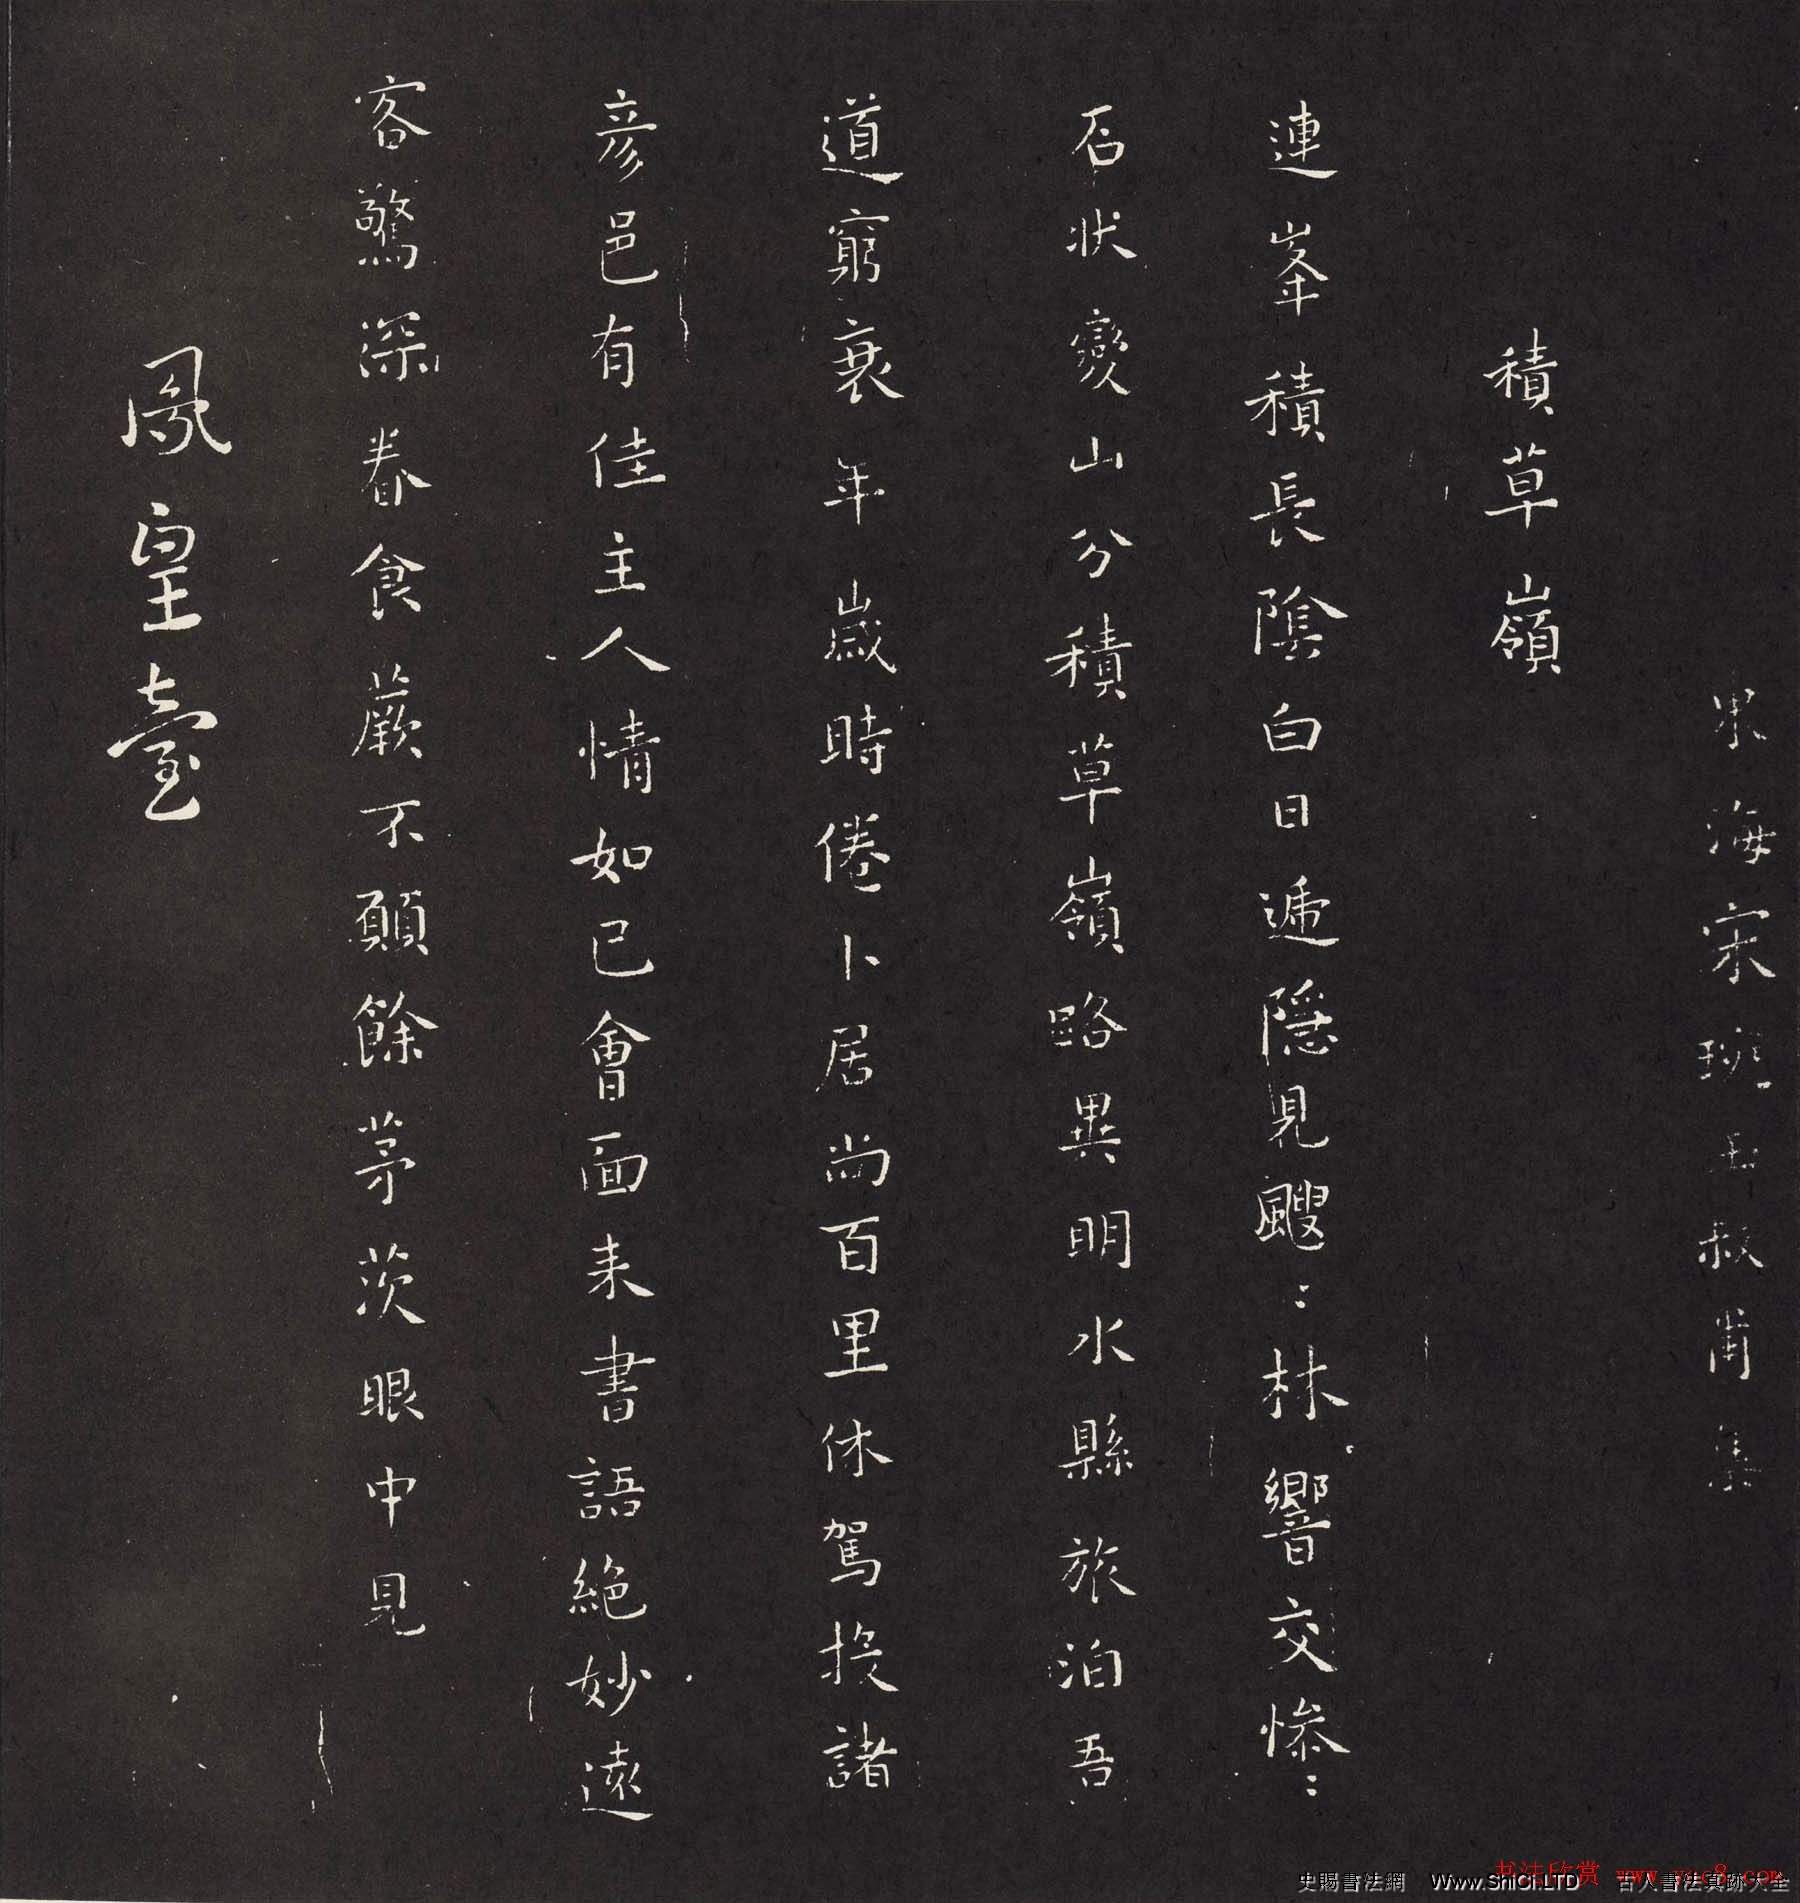 東海宋琬玉叔甫集
積草嶺
連峯積長陰白日遞隱見颼〻林響交慘〻
石狀變山分積草嶺路異明水縣旅泊吾
道窮衰年歲時倦卜居尚百里休駕投諸
彦邑有佳主人情如已會面来書語絕妙遠
客驚深眷食蕨不願餘茅茨眼中見
鳳皇臺
书法欣赏 www.yac8.com
史賜書法網 WWw.ShiCi.LTD 古人書法真跡大全